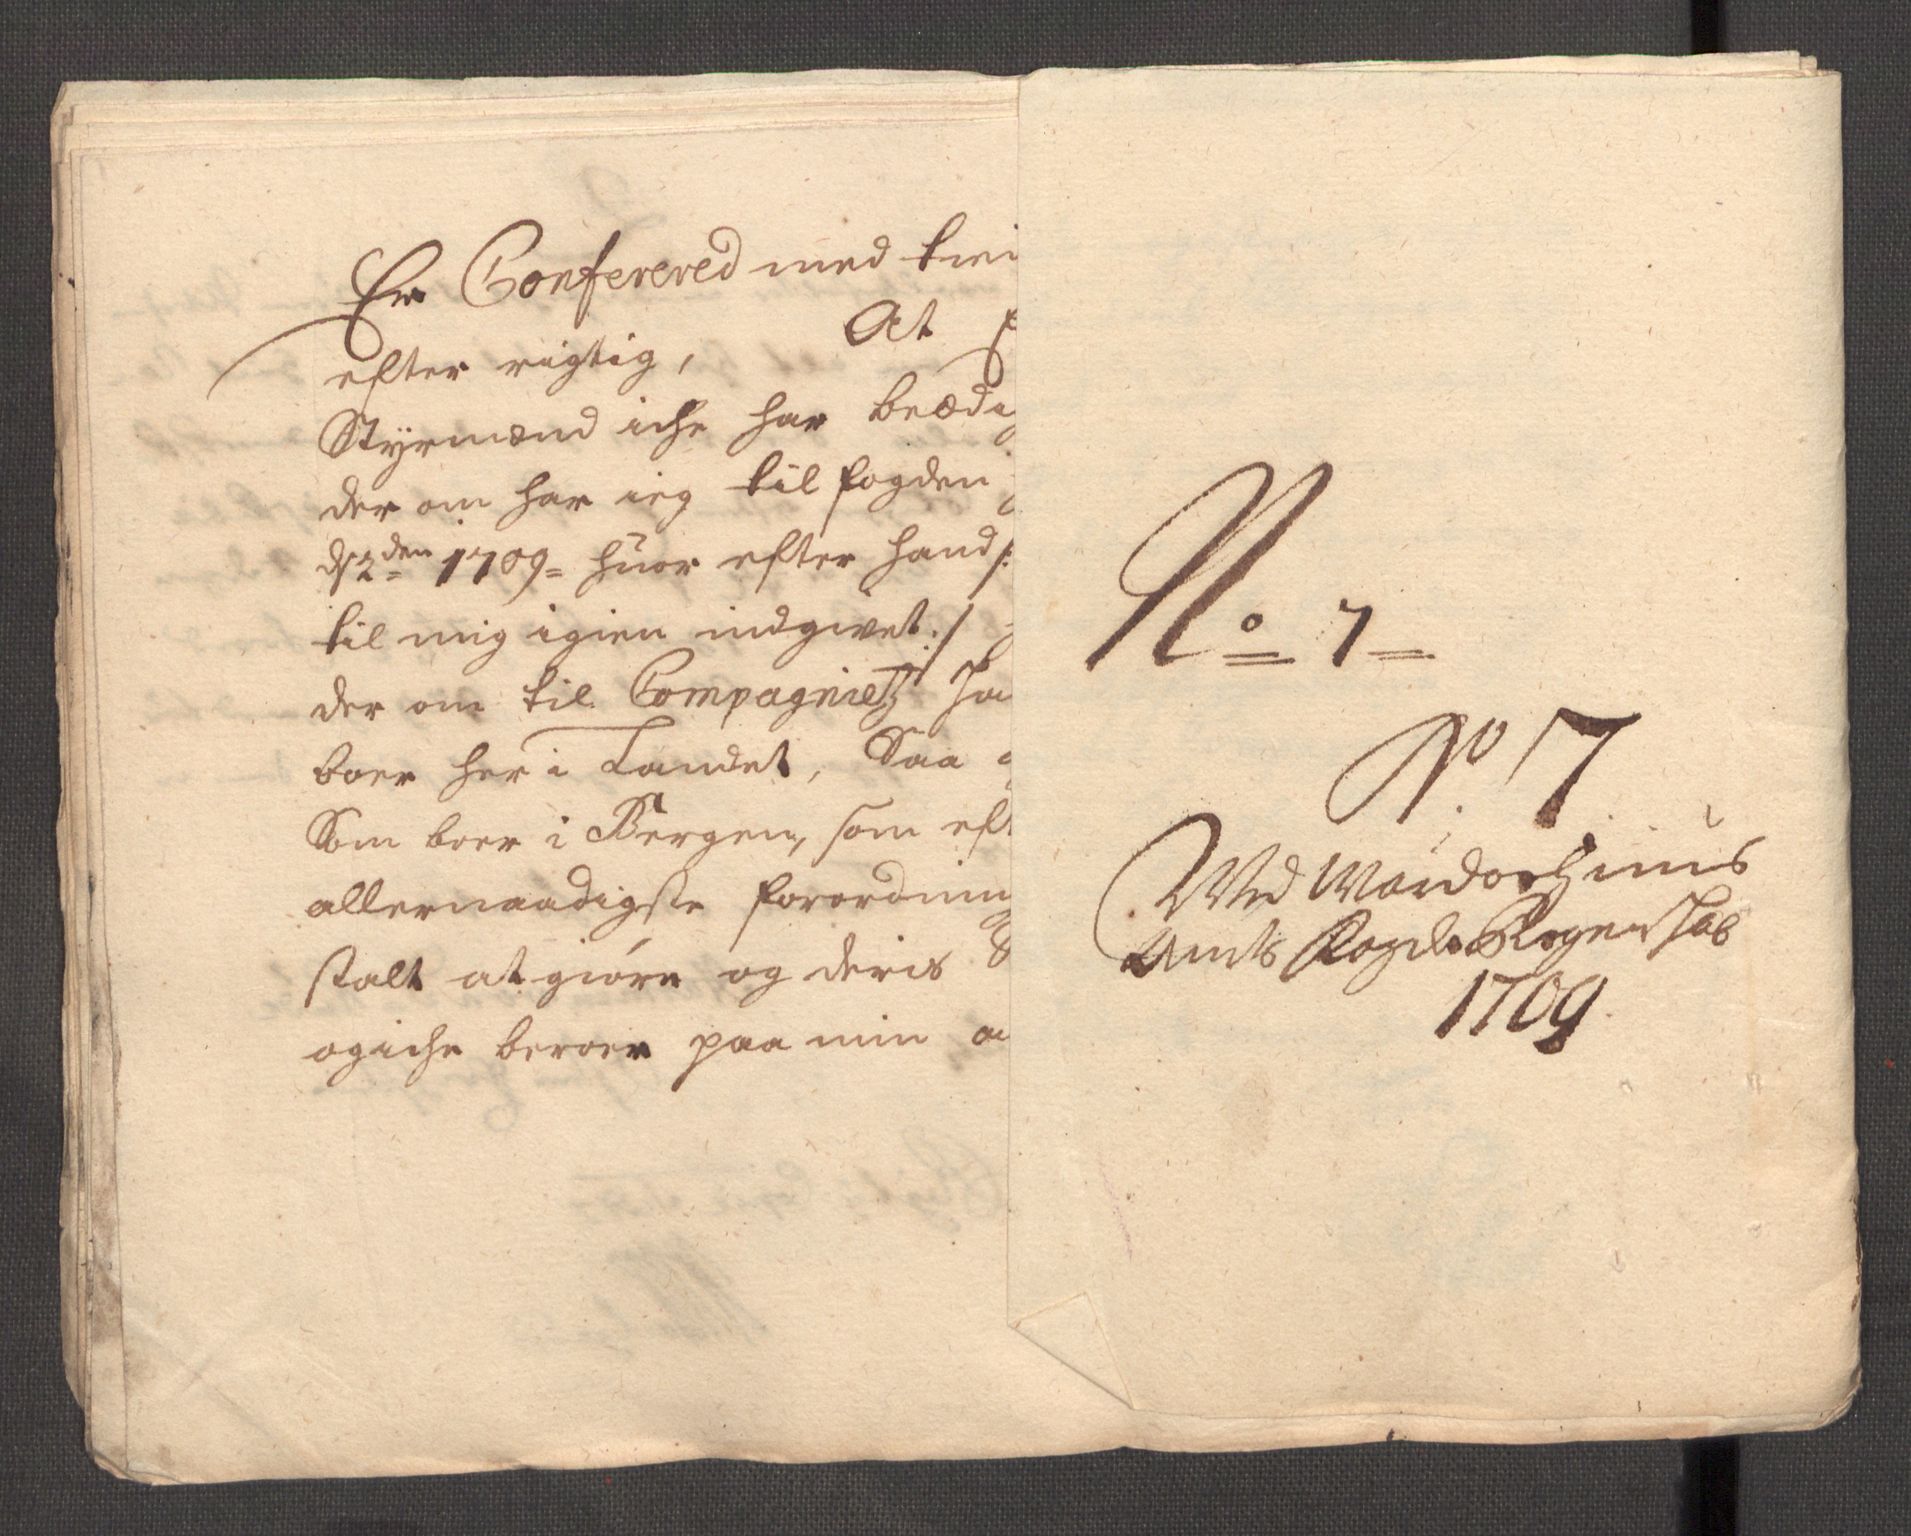 Er Conferered med
efter rigtig, At
Styrmænd iche har beædig
der om har ieg til fogden
d 2den 1709 huor efter hand /:
til mig igien indgivet :/
der om til Compagnietz ha
boer her i Landet, Saa
Som boer i Bergen, som eft
allernaadigste forordning
stalt at giøre og deris
og iche beroer paa min
No 7
No. 7
Ved Wardøehuus
Amts Fogde Regenskab
1709